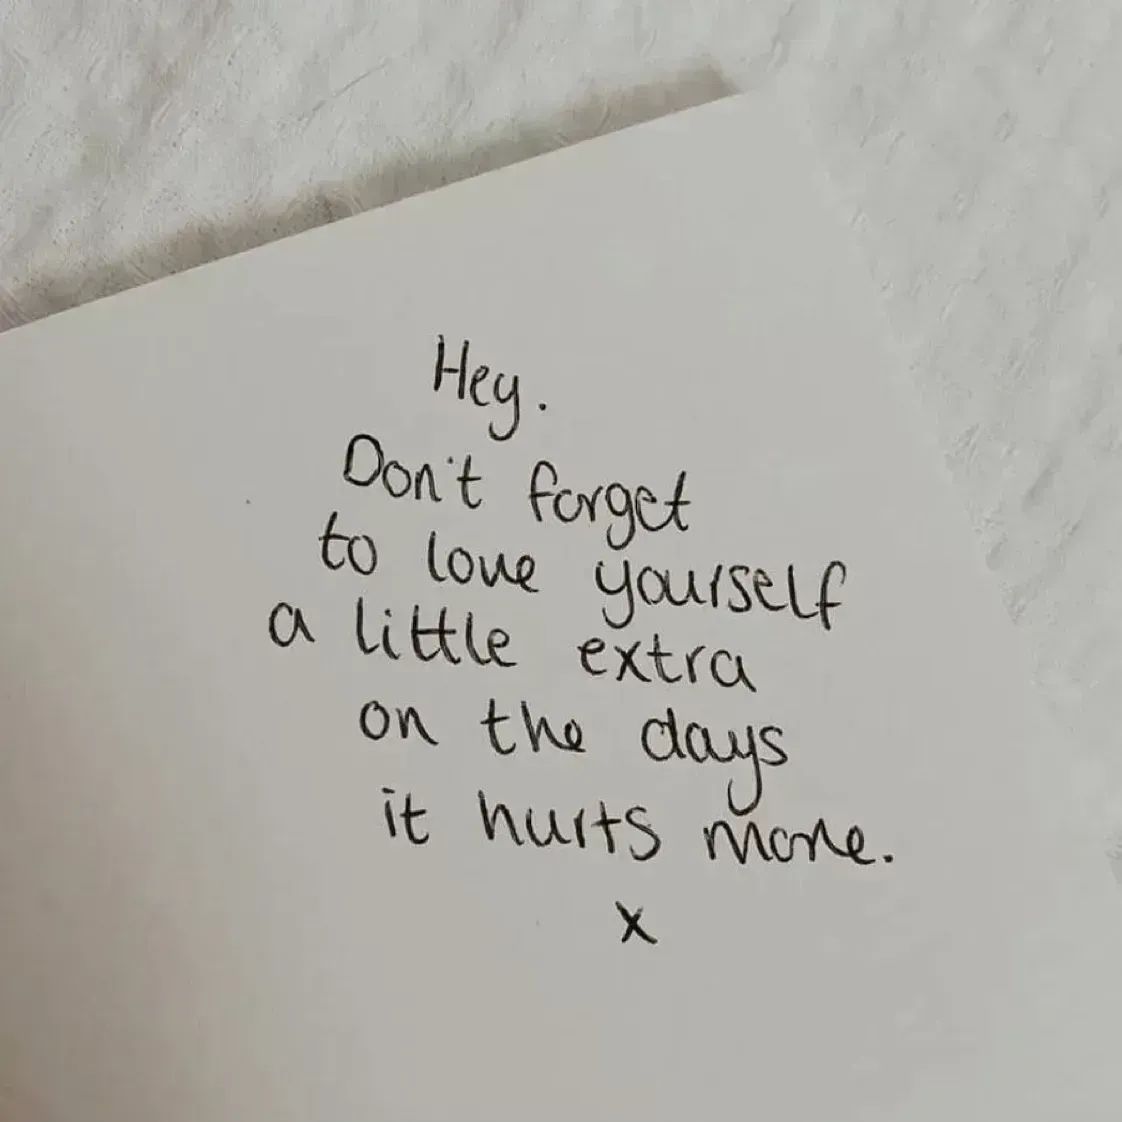 Hey.
Don't forget
to love yourself
a little extra
on the days
it hurts more.
x